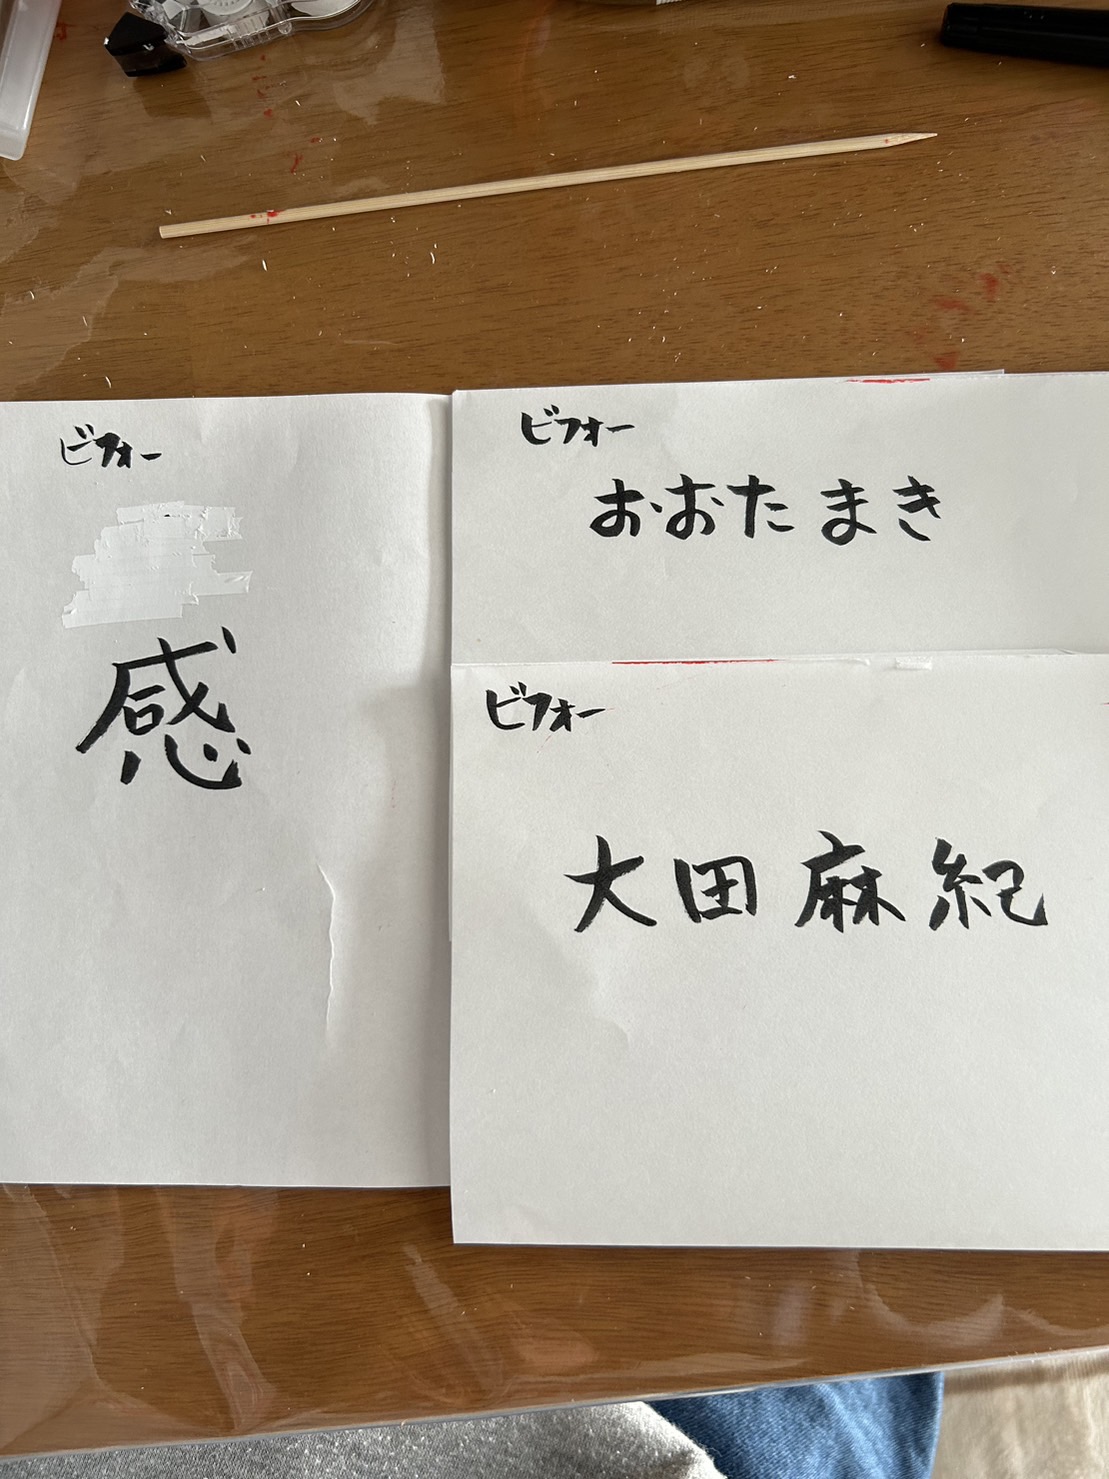 ビフォー
感
ビフォー
おおたまき
ビフォー
大田麻紀